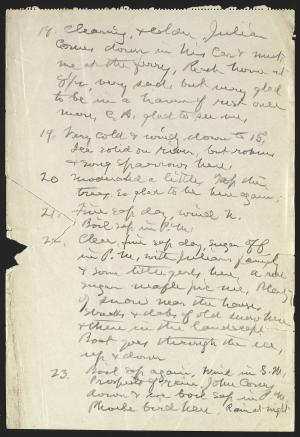 18. Clearing, & colder, Julian
comes down in his car & meets
me at the ferry, Reach home at
very sad, but very glad
to be in a haven of rest once
more, C. B. glad to see me,
19. Very cold & windy down to 15,
Ice solid on river, but robins
& song sparrows here,
20 Moderated a little. Tap the
trees. So glad to be here again.
21. Fine sap day, wind N.
Boil sap in P.M.
22. Clear, fine sap day, sugar off
in P.M. with Julian's family
& some little girls here, a real
sugar maple pic nic, Plenty
of snow near the house,
Streaks & dabs of old snow here
& there in the landscape.
Boat goes through the ice,
up & down
23. Boil sap again, Wind in S.W.
Prospect of rain, John
down & we boil sap in P.M.
Phoebe bird here, Rain at night